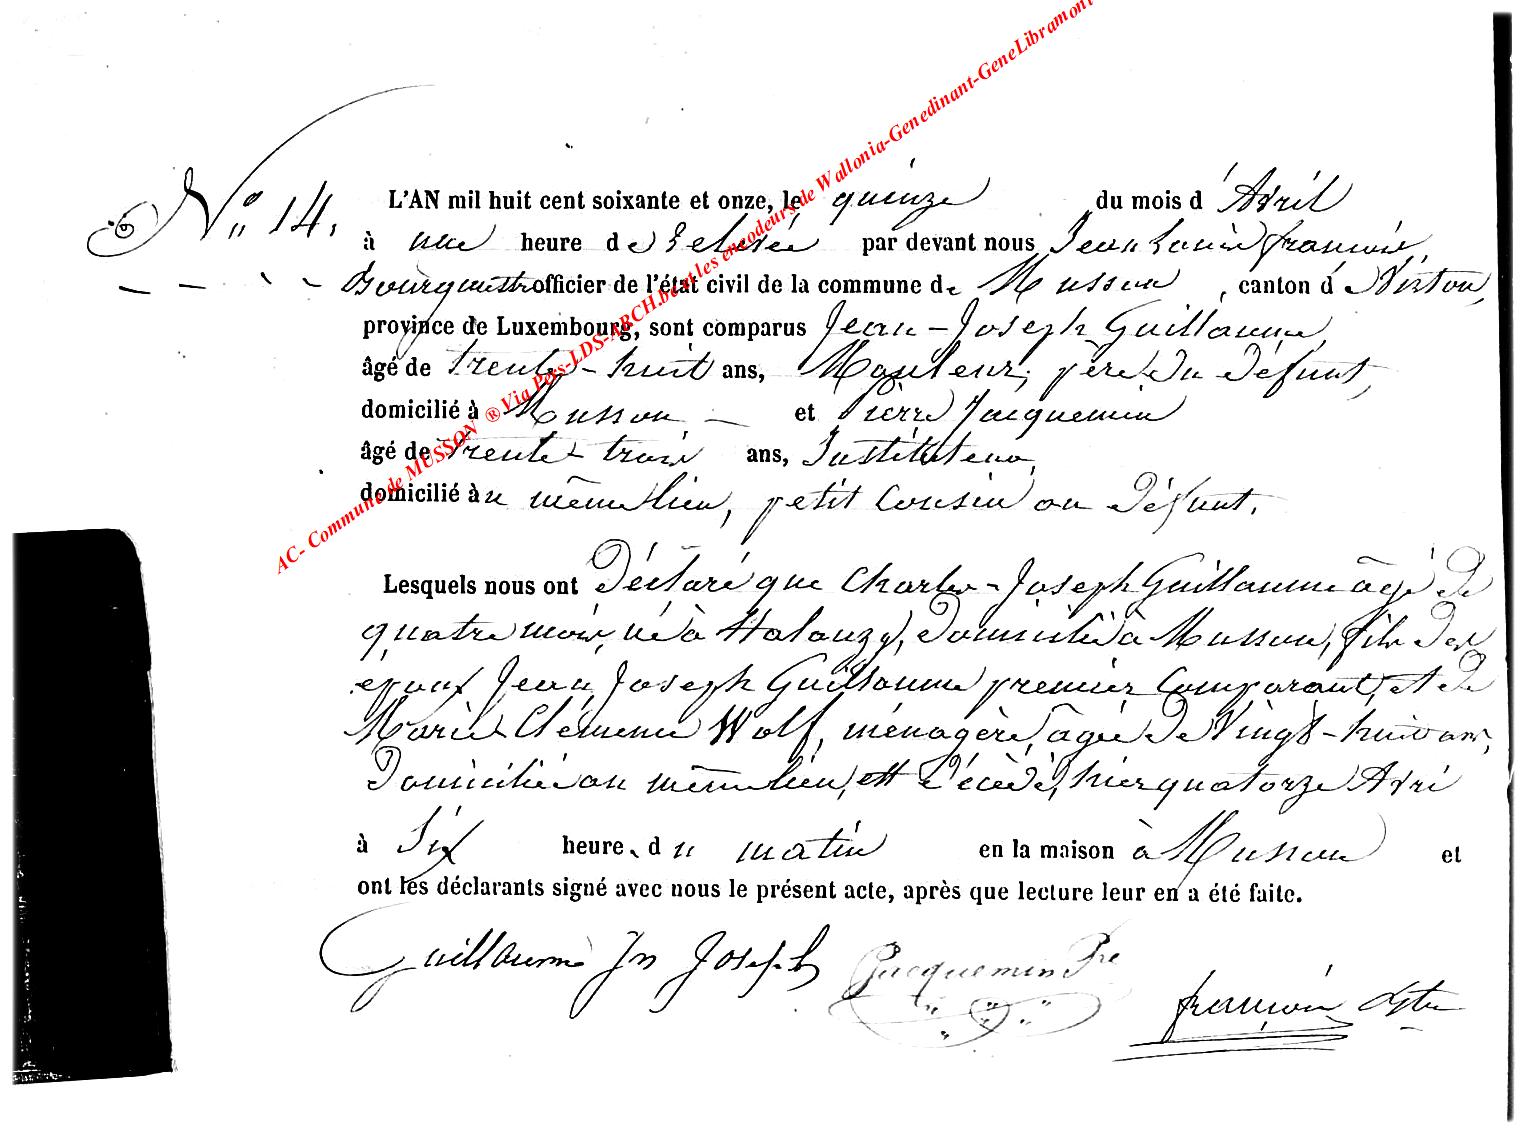 AC- Commune de MUSSON ® Via Pers-LDS-ARCH.be et les encodeurs de Wallonia-Genedinant-GeneLibramont
N° 14.
L'AN mil huit cent soixante et onze, le quinze du mois d'Avril
à une heure de relevée par devant nous Jean Louis françois,
Bourgmestre officier de l'état civil de la commune de Musson, canton de Virton,
province de Luxembourg, sont comparus Jean-Joseph Guillaume,
âgé de trente-huit ans, Mouleur, père du Défunt,
domicilié à Musson - et Pierre Jacquemin
âgé de trente-trois ans, Instituteur,
domicilié au même lieu, petit Cousin au Défunt.
Lesquels nous ont Déclaré que Charles-Joseph Guillaume âgé de
quatre mois, né à Halanzy, Domicilié à Musson, fils des
époux Jean Joseph Guillaume premier Comparant, et de
Marie Clémence Wolf, ménagère, âgée de Vingt-huit ans,
Domiciliée au même lieu, est décédé, hier quatorze Avri
à Six heures du matin en la maison à Musson et
ont les déclarants signé avec nous le présent acte, après que lecture leur en a été faite.
Guillaume Jn Joseph Jacquemin Pre
françois